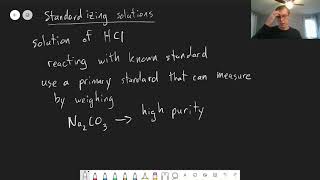 Standardizing solutions
solution of HCl
reacting with known standard
use a primary standard that can measure
by weighing
Na2CO3 → high purity